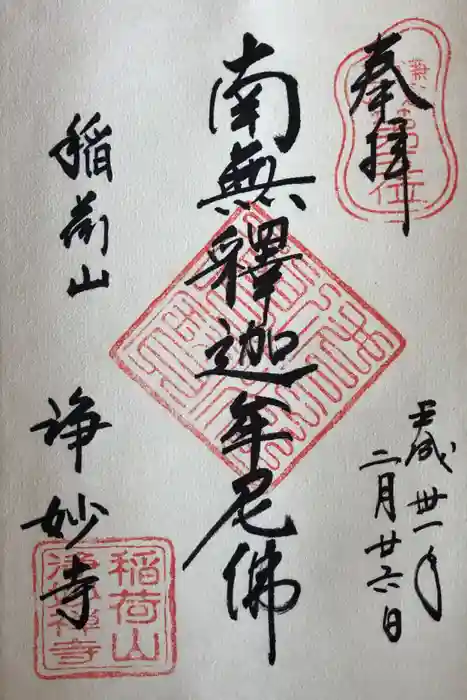 奉拝
平成卅一年
二月廿六日
南無釋迦牟尼佛
稲荷山
浄妙寺
第五位
稲荷山
淨妙禪寺